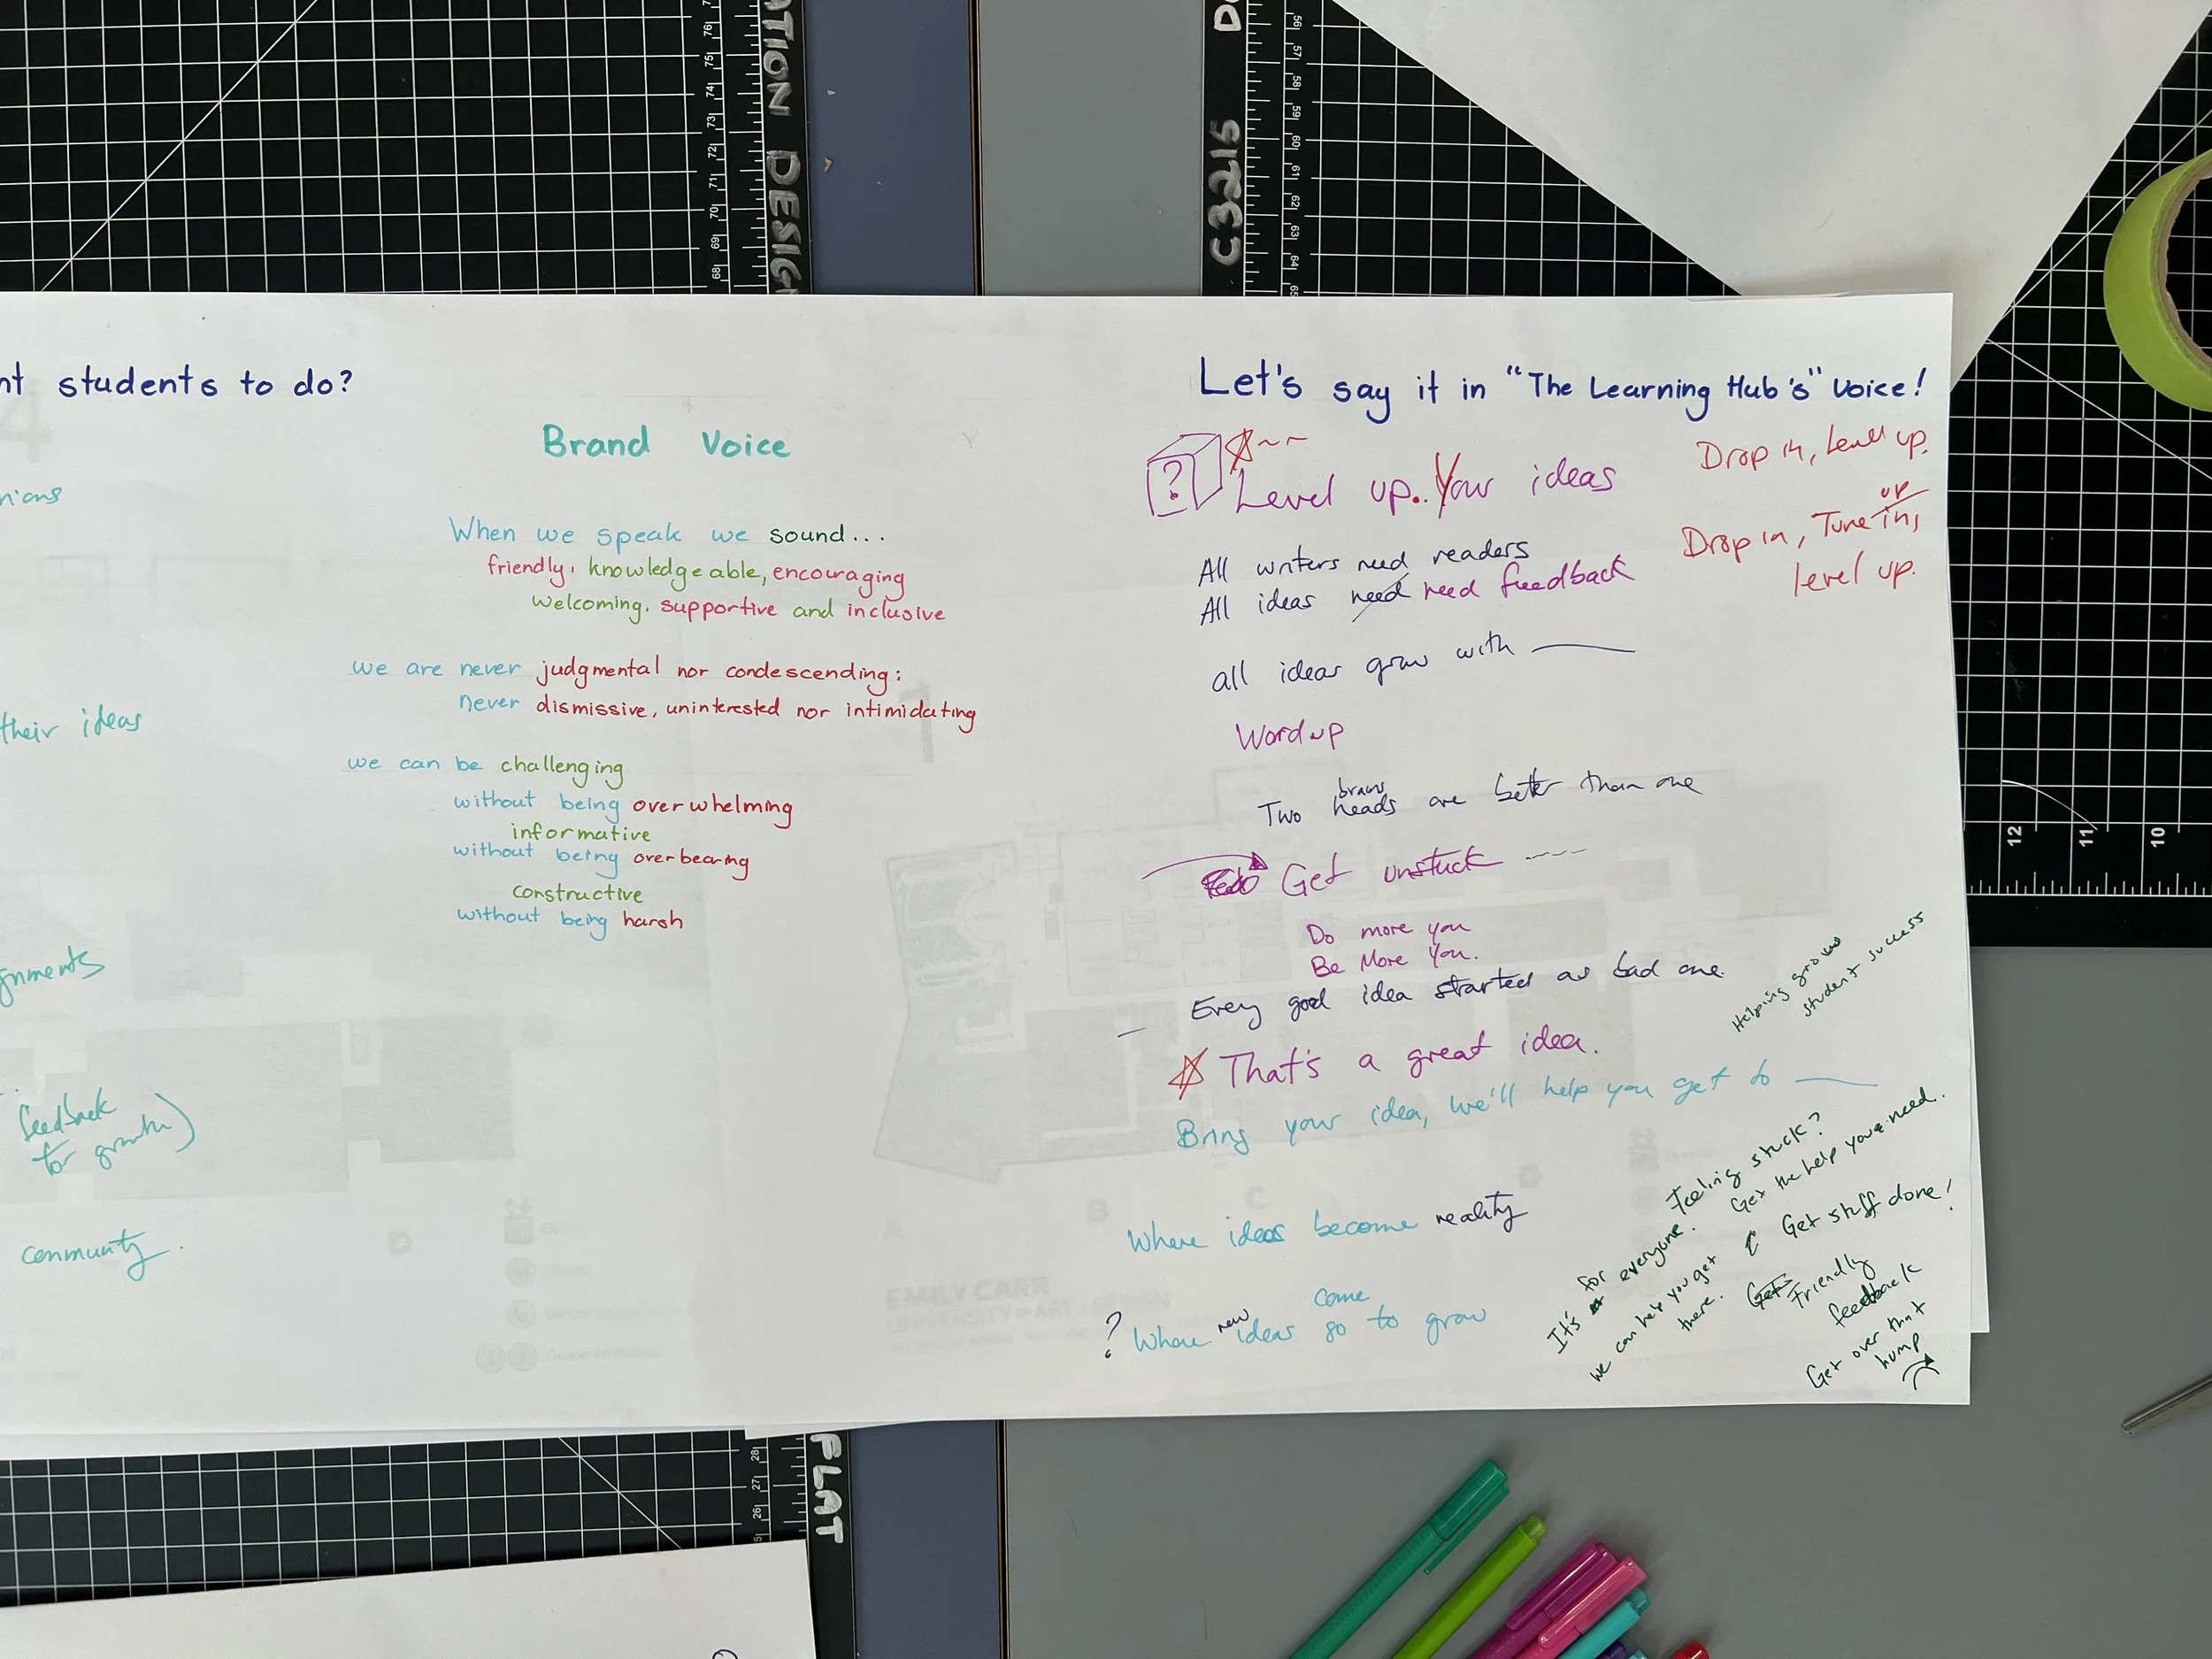 ATION DESIGN
C3215 D
76
75
74
73
72
71
70
69
68
56
57
58
59
60
61
62
63
64
65
students to do?
their ideas
feedback
for growth)
community.
Brand Voice
When we speak we sound...
friendly, knowledgeable, encouraging
welcoming, supportive and inclusive
we are never judgmental nor condescending;
never dismissive, uninterested nor intimidating
we can be challenging
without being overwhelming
informative
without being overbearing
constructive
without being harsh
Let's say it in "The Learning Hub's" Voice!
?
Level up.. Your ideas
All writers need readers
All ideas need need feedback
all ideas grow with ____
Word up
brains
Two heads are better than one
Get unstuck ----
Do more you
Be More You.
Every good idea started as bad one.
That's a great idea.
Bring your idea, we'll help you get to ____
Where ideas become reality
come
? Where new ideas go to grow
Drop in, Level up.
up
Drop in, Tune in,
level up.
Helping grow
student success
Feeling stuck?
Get the help you need.
It's for everyone.
we can help you get
there.
Get stuff done!
Get Friendly
feedback
Get over that
hump
12
11
10
EMILY CARR
UNIVERSITY OF ART + DESIGN
A
B
C
D
28
27
26
FLAT